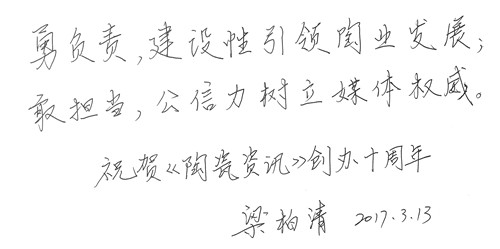 勇负责，建设性引领陶业发展；
敢担当，公信力树立媒体权威。
祝贺《陶瓷资讯》创办十周年
梁柏清 2017.3.13